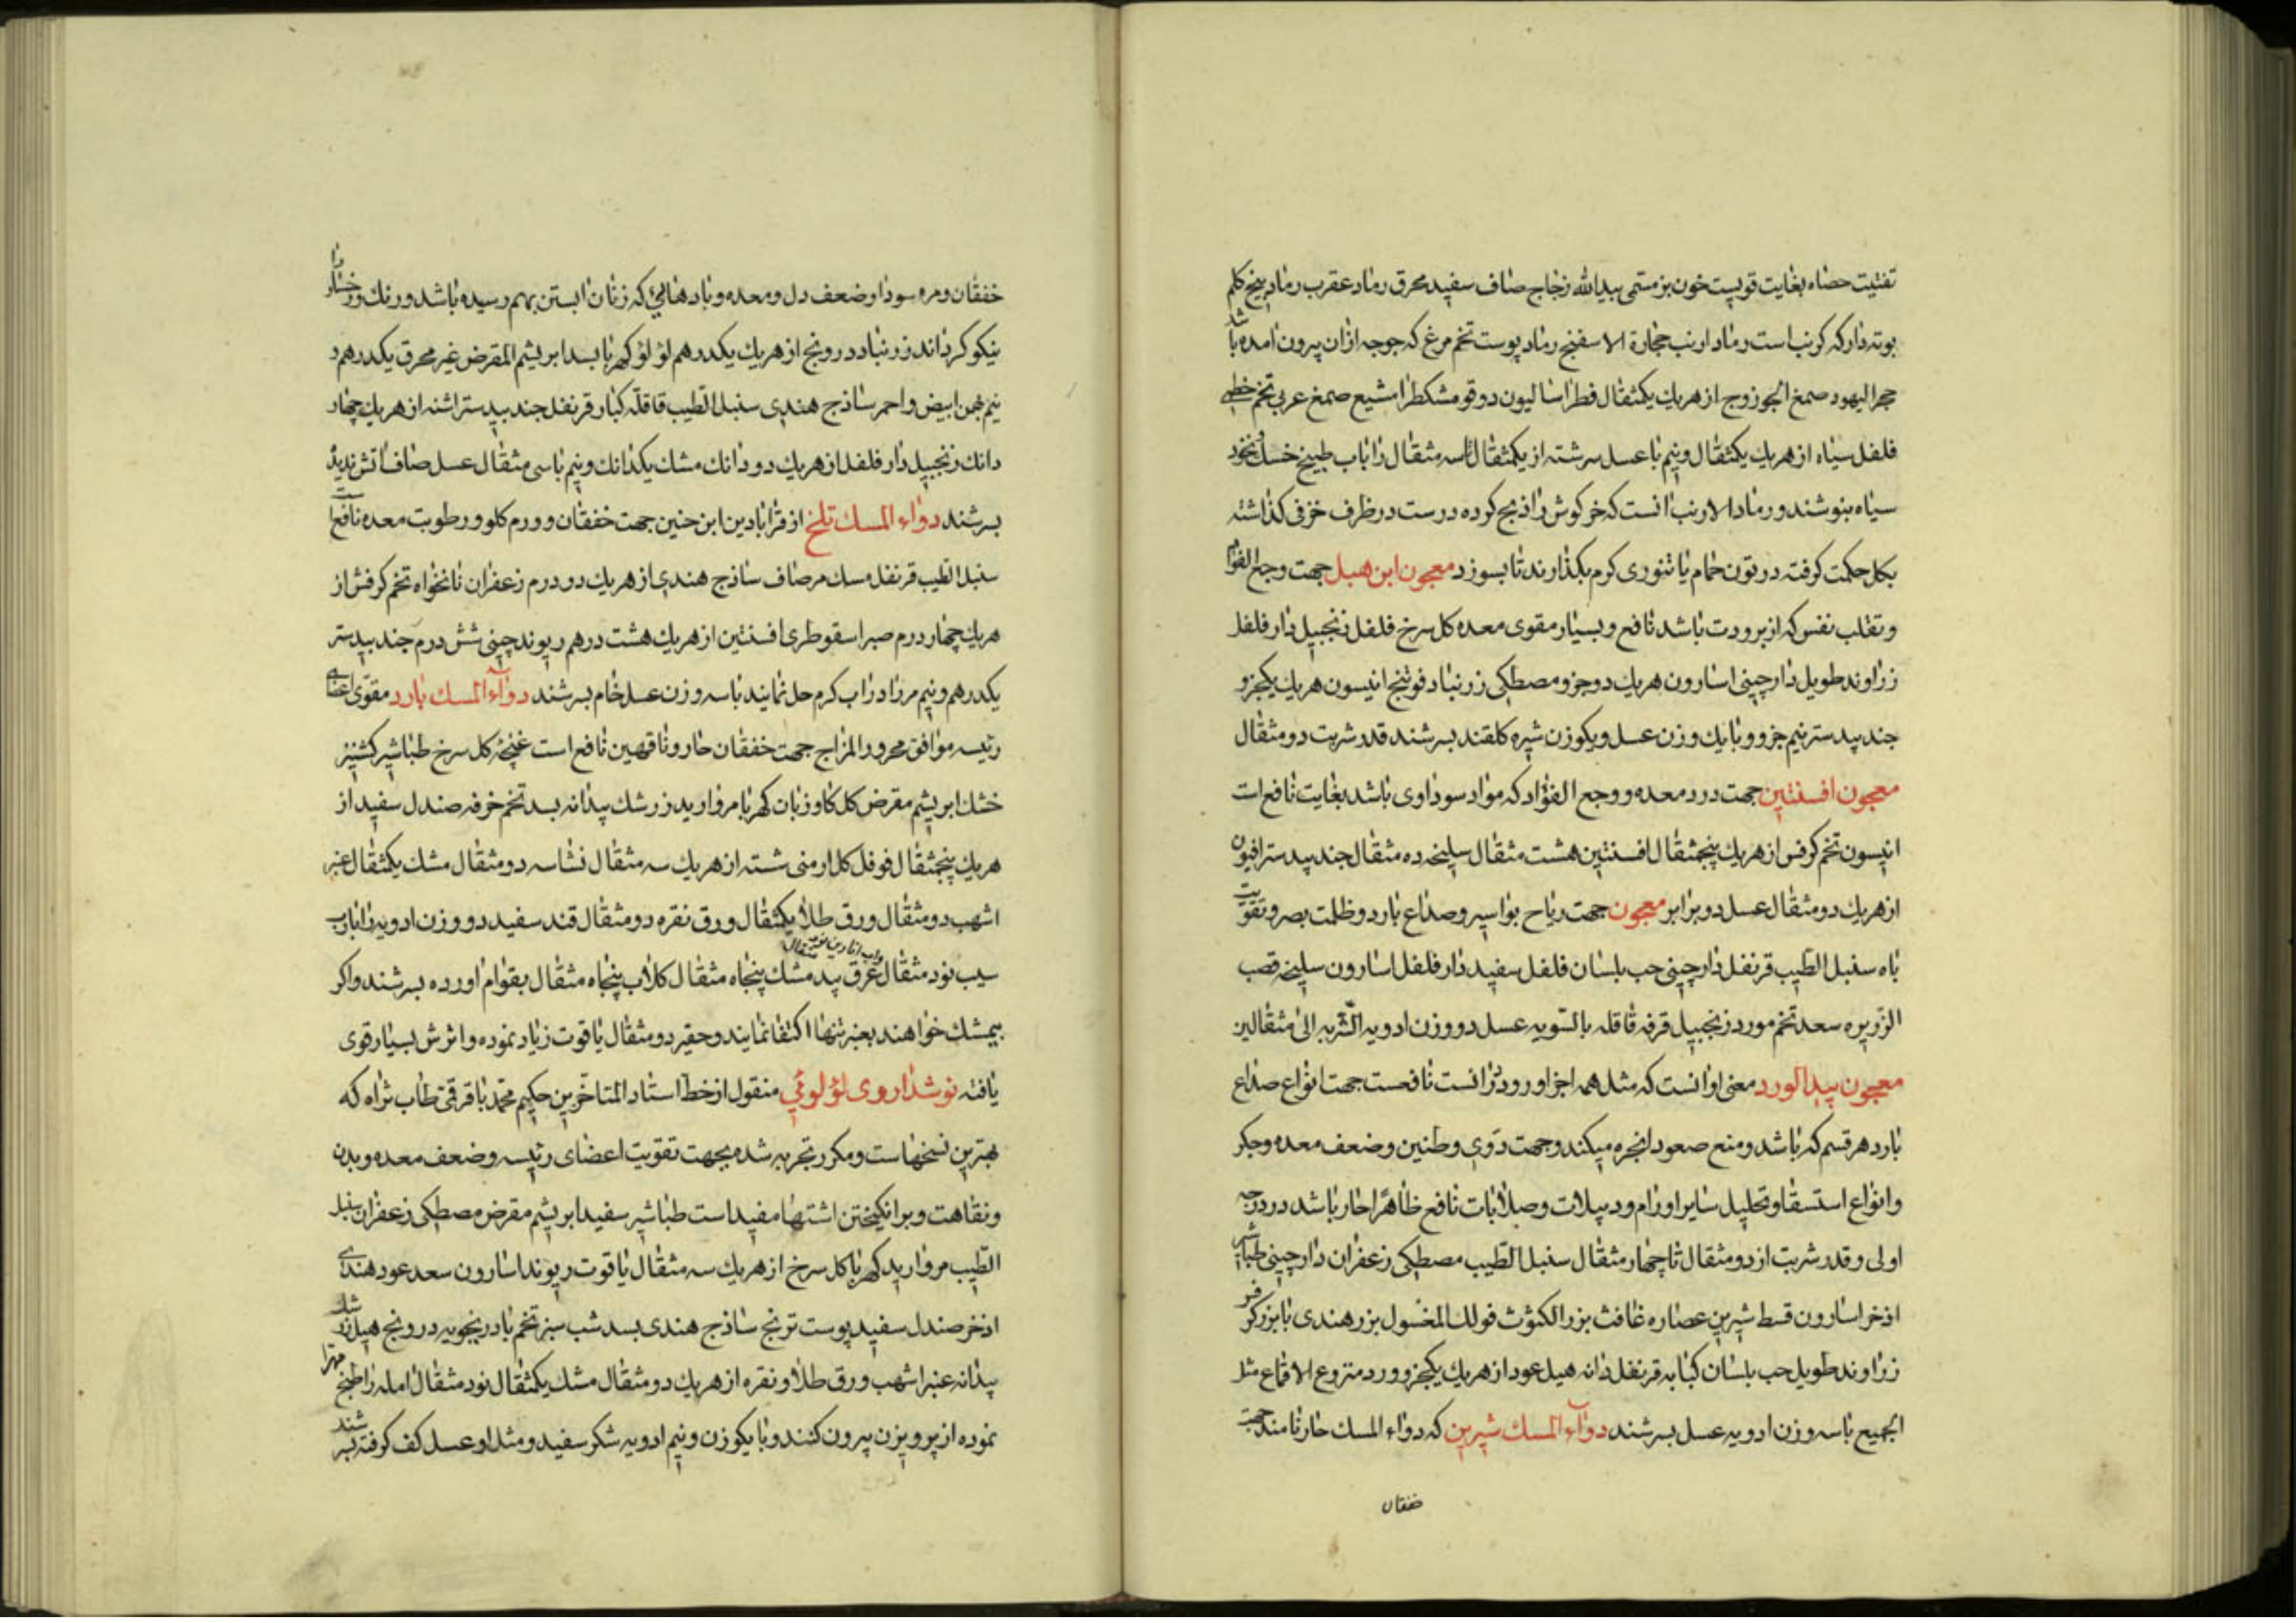 تفتیت حصاه بغایت قویست خون بز مستمی بیدالله زجاج صاف سفید محرق رماد عقرب رماد بیخ کلم
بوته دار که کرنب است رماد ارنب حجارة الاسفنج رماد پوست تخم مرغ که جوجه ازان بیرون امده باشد
حجر الیهود صمغ الجوز وج از هر یك یکمثقال فطراسالیون دوقو مشکطرامشیع صمغ عربی تخم خطمی
فلفل سیاه از هر یك یکمثقال و نیم با عسل سرشته از یکمثقال تا سه مثقال را باب طبیخ خسك و نخود
سیاه بنوشند و رماد الارنب انست که خرکوش را ذبح کرده درست در ظرف خزفی کذاشته
بکل حکمت کرفته در تون حمام یا تنوری کرم بکذارند تا بسوزد معجون ابن هبل جهت وجع الفواد
و تقلب نفس که از برودت باشد نافع و بسیار مقوی معده کل سرخ فلفل زنجبیل دار فلفل
زراوند طویل دارچینی اسارون هر یك دو جزو مصطکی زرنباد فوتنج انیسون هر یك یکجزو
جند بیدستر نیم جزو و با یك وزن عسل و یکوزن شیره کلقند بسرشند قدر شربت دو مثقال
معجون افسنتین جهت درد معده و وجع الفؤاد که مواد سوداوی باشد بغایت نافع است
انیسون تخم کرفس از هر یك پنجمثقال افسنتین هشت مثقال سلیخه ده مثقال جند بیدستر افیون
از هر یك دو مثقال عسل دو برابر معجون جهت ریاح بواسیر و صداع بارد و ظلمت بصر و تقویت
باه سنبل الطیب قرنفل دارچینی حب بلسان فلفل سفید دار فلفل اسارون سلیخه قصب
الزریره سعد تخم مورد زنجبیل قرفه قاقله بالسّویه عسل دو وزن ادویه الشّربه الی مثقالین
معجون بیدالورد معنی او انست که مثل همه اجزا ورود دران است نافعست جهت انواع صداع
بارد هر قسم که باشد و منع صعود ابخره میکند و جهت دوی و طنین و ضعف معده و جکر
و انواع استسقا و تحلیل سایر اورام و دبیلات و صلابات نافع ظاهرًا حار باشد در درجه
اولی و قدر شربت از دو مثقال تا چهار مثقال سنبل الطیب مصطکی زعفران دارچینی طباشیر
اذخر اسارون قسط شیرین عصاره غافث بزر الکثوث فولك المغسول بزر هندی با بزر کرفس
زراوند طویل حب بلسان کبابه قرنفل دانه هیل عود از هر یك یکجزو ورد منزوع الاقماع مثل
الجمیع با سه وزن ادویه عسل بسرشند دواء المسك شیرین که دواء المسك حار نامند جهت
خفقان
خفقان و مره سودا و ضعف دل و معده و بادهائی که زنان ابستن بهم رسیده باشد و رنك و رخسار را
نیکو کرداند زرنباد درونج از هر یك یکدرهم لؤلؤ کهربا بسد ابریشم المقرض غیر محرق یکدرهم و
نیم بهمن ابیض و احمر ساذج هندی سنبل الطیب قاقلّه کبار قرنفل جند بیدستر اشنه از هر یك چهار
دانك زنجبیل دار فلفل از هر یك دو دانك مشك یکدانك و نیم با سی مثقال عسل صاف اتش ندیده
بسرشند دواء المسك تلخ از قرابادین ابن حنین جهت خفقان و ورم کلو و رطوبت معده نافع است
سنبل الطیب قرنفل مسك مر صاف ساذج هندی از هر یك دو درم زعفران نانخواه تخم کرفش از
هر یك چهار درم صبر اسقوطری افسنتین از هر یك هشت درهم ریوند چینی شش درم جند بیدستر
یکدرهم و نیم مر را در اب کرم حل نمایند با سه وزن عسل خام بسرشند دواء المسك بارد مقوّی اعضای
رئیسه موافق محرور المزاج جهت خفقان حار و ناقهین نافع است غنچه کل سرخ طباشیر کشنیز
خشك ابریشم مقرض کل کاو زبان کهربا مروارید زرشك بیدانه بسد تخم خرفه صندل سفید از
هر یك پنجمثقال فوفل کل ارمنی شسته از هر یك سه مثقال نشاسه دو مثقال مشك یکمثقال عنبر
اشهب دو مثقال ورق طلا یکمثقال ورق نقره دو مثقال قند سفید دو وزن ادویه را باب
سیب نود مثقال عرق بیدمشك پنجاه مثقال کلاب پنجاه مثقال بقوام اورده بسرشند و اکر
بیمشك خواهند بعنبر تنها اکتفا نمایند و حقیر دو مثقال یاقوت زیاد نموده و اثرش بسیار قوی
یافته نوشداروی لؤلوئی منقول از خط استاد المتاخّرین حکیم محمّد باقر قمّی طاب ثراه که
بهترین نسخهاست و مکرر تجربه شده بجهت تقویت اعضای رئیسه و ضعف معده و بدن
و نقاهت و برانکیختن اشتها مفید است طباشیر سفید ابریشم مقرض مصطکی زعفران سنبل
الطّیب مروارید کهربا کل سرخ از هر یك سه مثقال یاقوت ریوند اسارون سعد عود هندی
اذخر صندل سفید پوست ترنج ساذج هندی بسد شب سبز تخم بادرنجویه درونج هیل زرشك
بیدانه عنبر اشهب ورق طلا و نقره از هر یك دو مثقال مشك یکمثقال نود مثقال امله را طبخ مهرا
نموده از پرویزن بیرون کنند و با یکوزن و نیم ادویه شکر سفید و مثل او عسل کف کرفته بسرشند